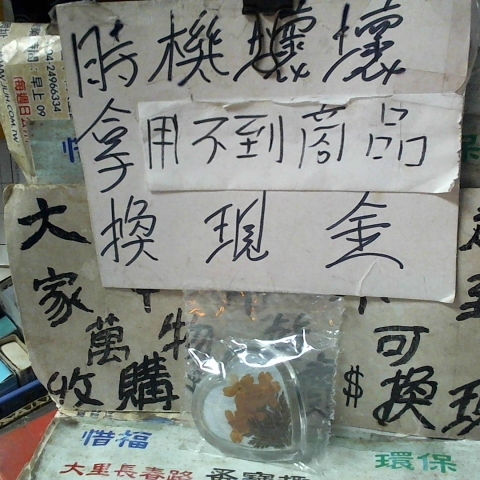 時機壞壞
拿用不到商品
換現金
大家
萬物
可
收購
$換現
惜福
環保
大里長春路